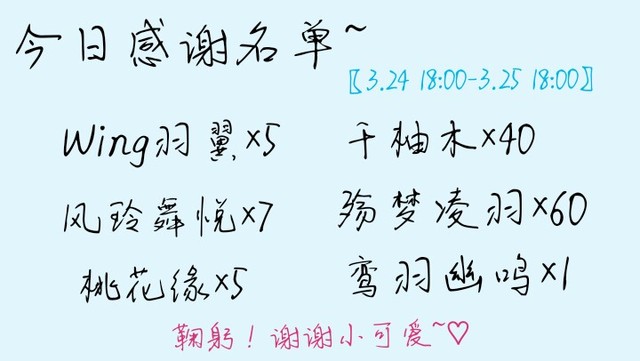 今日感谢名单~
〖3.24 18:00-3.25 18:00〗
Wing羽翼×5 千柚木×40
风玲舞悦×7 殇梦凌羽×60
桃花缘×5 鸾羽幽鸣×1
鞠躬！谢谢小可爱~♡